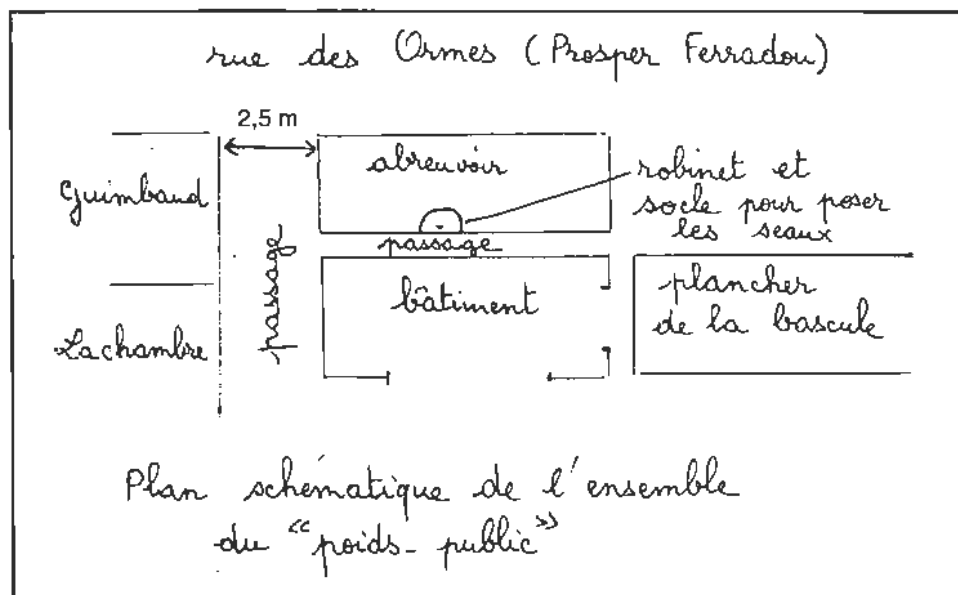 rue des Ormes (Prosper Ferradou)
2,5 m
Guimbaud
abreuvoir
robinet et
socle pour poser
les seaux
passage
passage
bâtiment
plancher
de la bascule
Lachambre
Plan schématique de l'ensemble
du "poids-public"